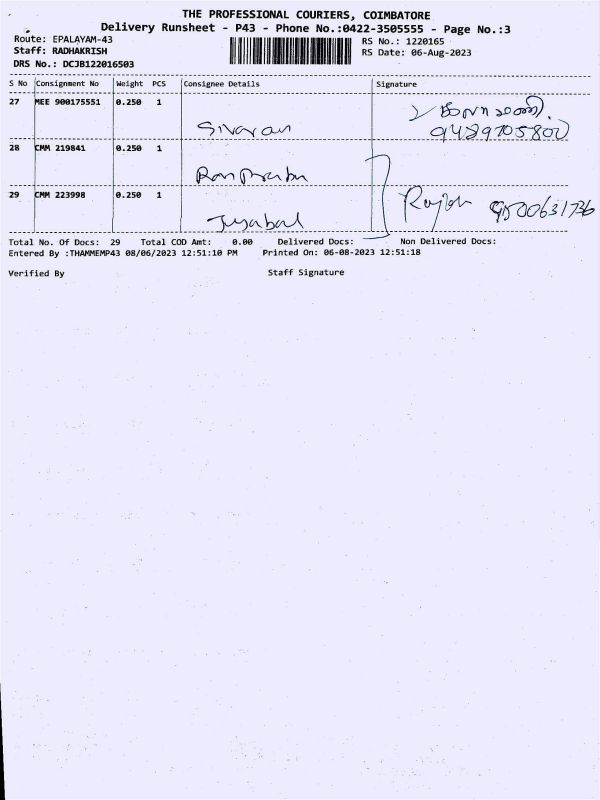 THE PROFESSIONAL COURIERS, COIMBATORE
Delivery Runsheet - P43 - Phone No.:0422-3505555 - Page No.:3
Route: EPALAYAM-43
RS No.: 1220165
Staff: RADHAKRISH
RS Date: 06-Aug-2023
DRS No.: DCJB122016503
S No Consignment No Weight PCS Consignee Details Signature
27 MEE 900175551 0.250 1
Sivaran
9489705800
28 CMM 219841 0.250 1
29 CMM 223998 0.250 1
9500631736
Jeyabal
Total No. Of Docs: 29 Total COD Amt: 0.00 Delivered Docs: Non Delivered Docs:
Entered By :THAMMEMP43 08/06/2023 12:51:10 PM Printed On: 06-08-2023 12:51:18
Verified By Staff Signature